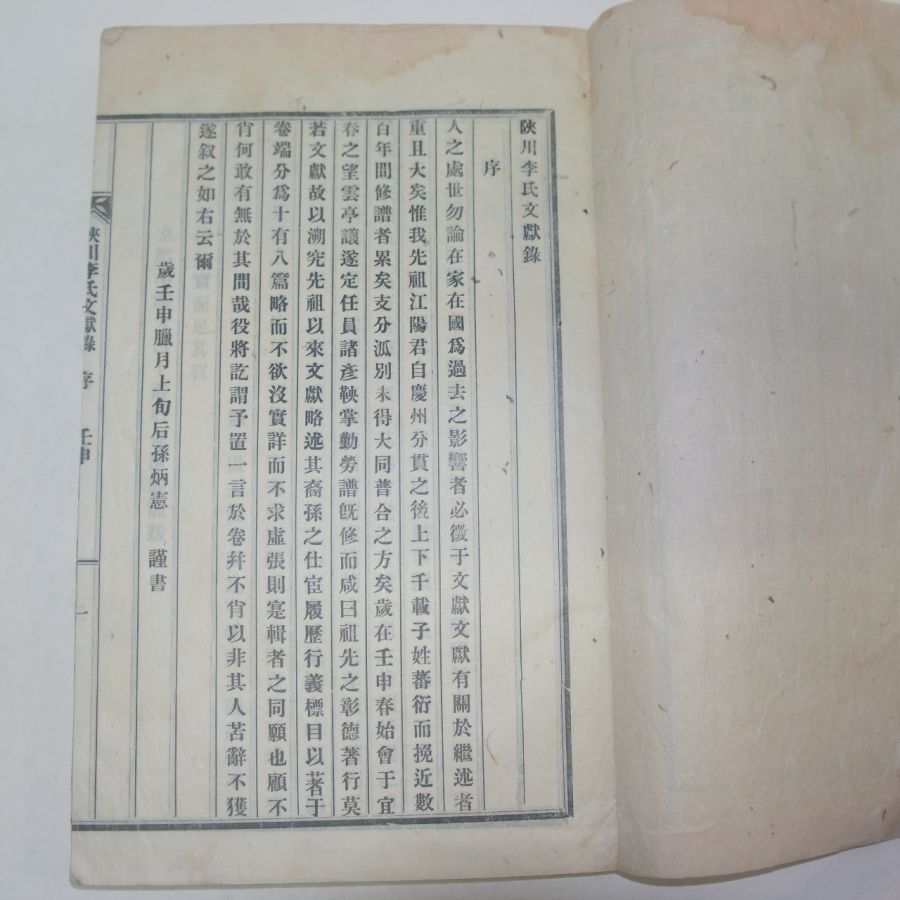 陜川李氏文獻錄
序
人之處世勿論在家在國爲過去之影響者必徵于文獻文獻有關於繼述者
重且大矣惟我先祖江陽君自慶州分貫之後上下千載子姓蕃衍而挽近數
百年間修譜者累矣支分泒別未得大同普合之方矣歲在壬申春始會于宜
春之望雲亭議遂定任員諸彥鞅掌勤勞譜旣修而咸曰祖先之彰德著行莫
若文獻故以溯究先祖以來文獻略述其裔孫之仕宦履歷行義標目以著于
卷端分爲十有八篇略而不欲沒實詳而不求虛張則寔輯者之同願也顧不
肖何敢有無於其間哉役將訖謂予置一言於卷弁不肖以非其人苦辭不獲
遂叙之如右云爾
歲壬申臘月上旬后孫炳憲 謹書
陜川李氏文獻錄 序 壬申 一